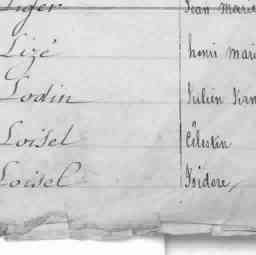 Liger Jean Marie
Lizé henri Mari
Lodin Julien Firm
Loisel Célestin
Loisel Isidore,